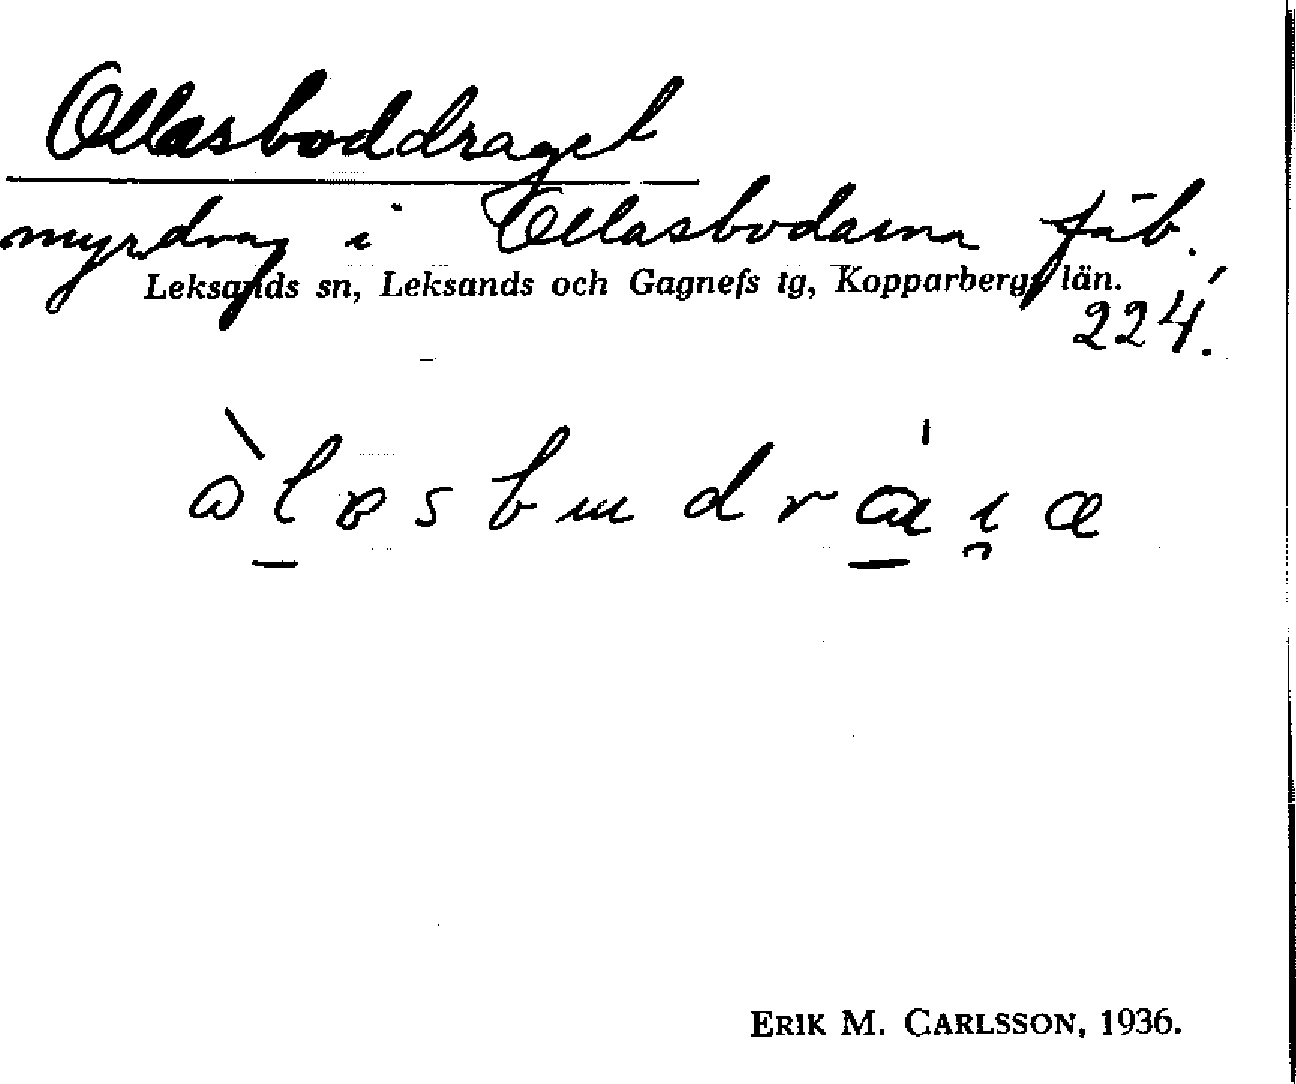 Ollasboddraget
myrdrag i Ollasbodarna fäb.
Leksands sn, Leksands och Gagnefs tg, Kopparbergs län.
224.
ERIK M. CARLSSON, 1936.